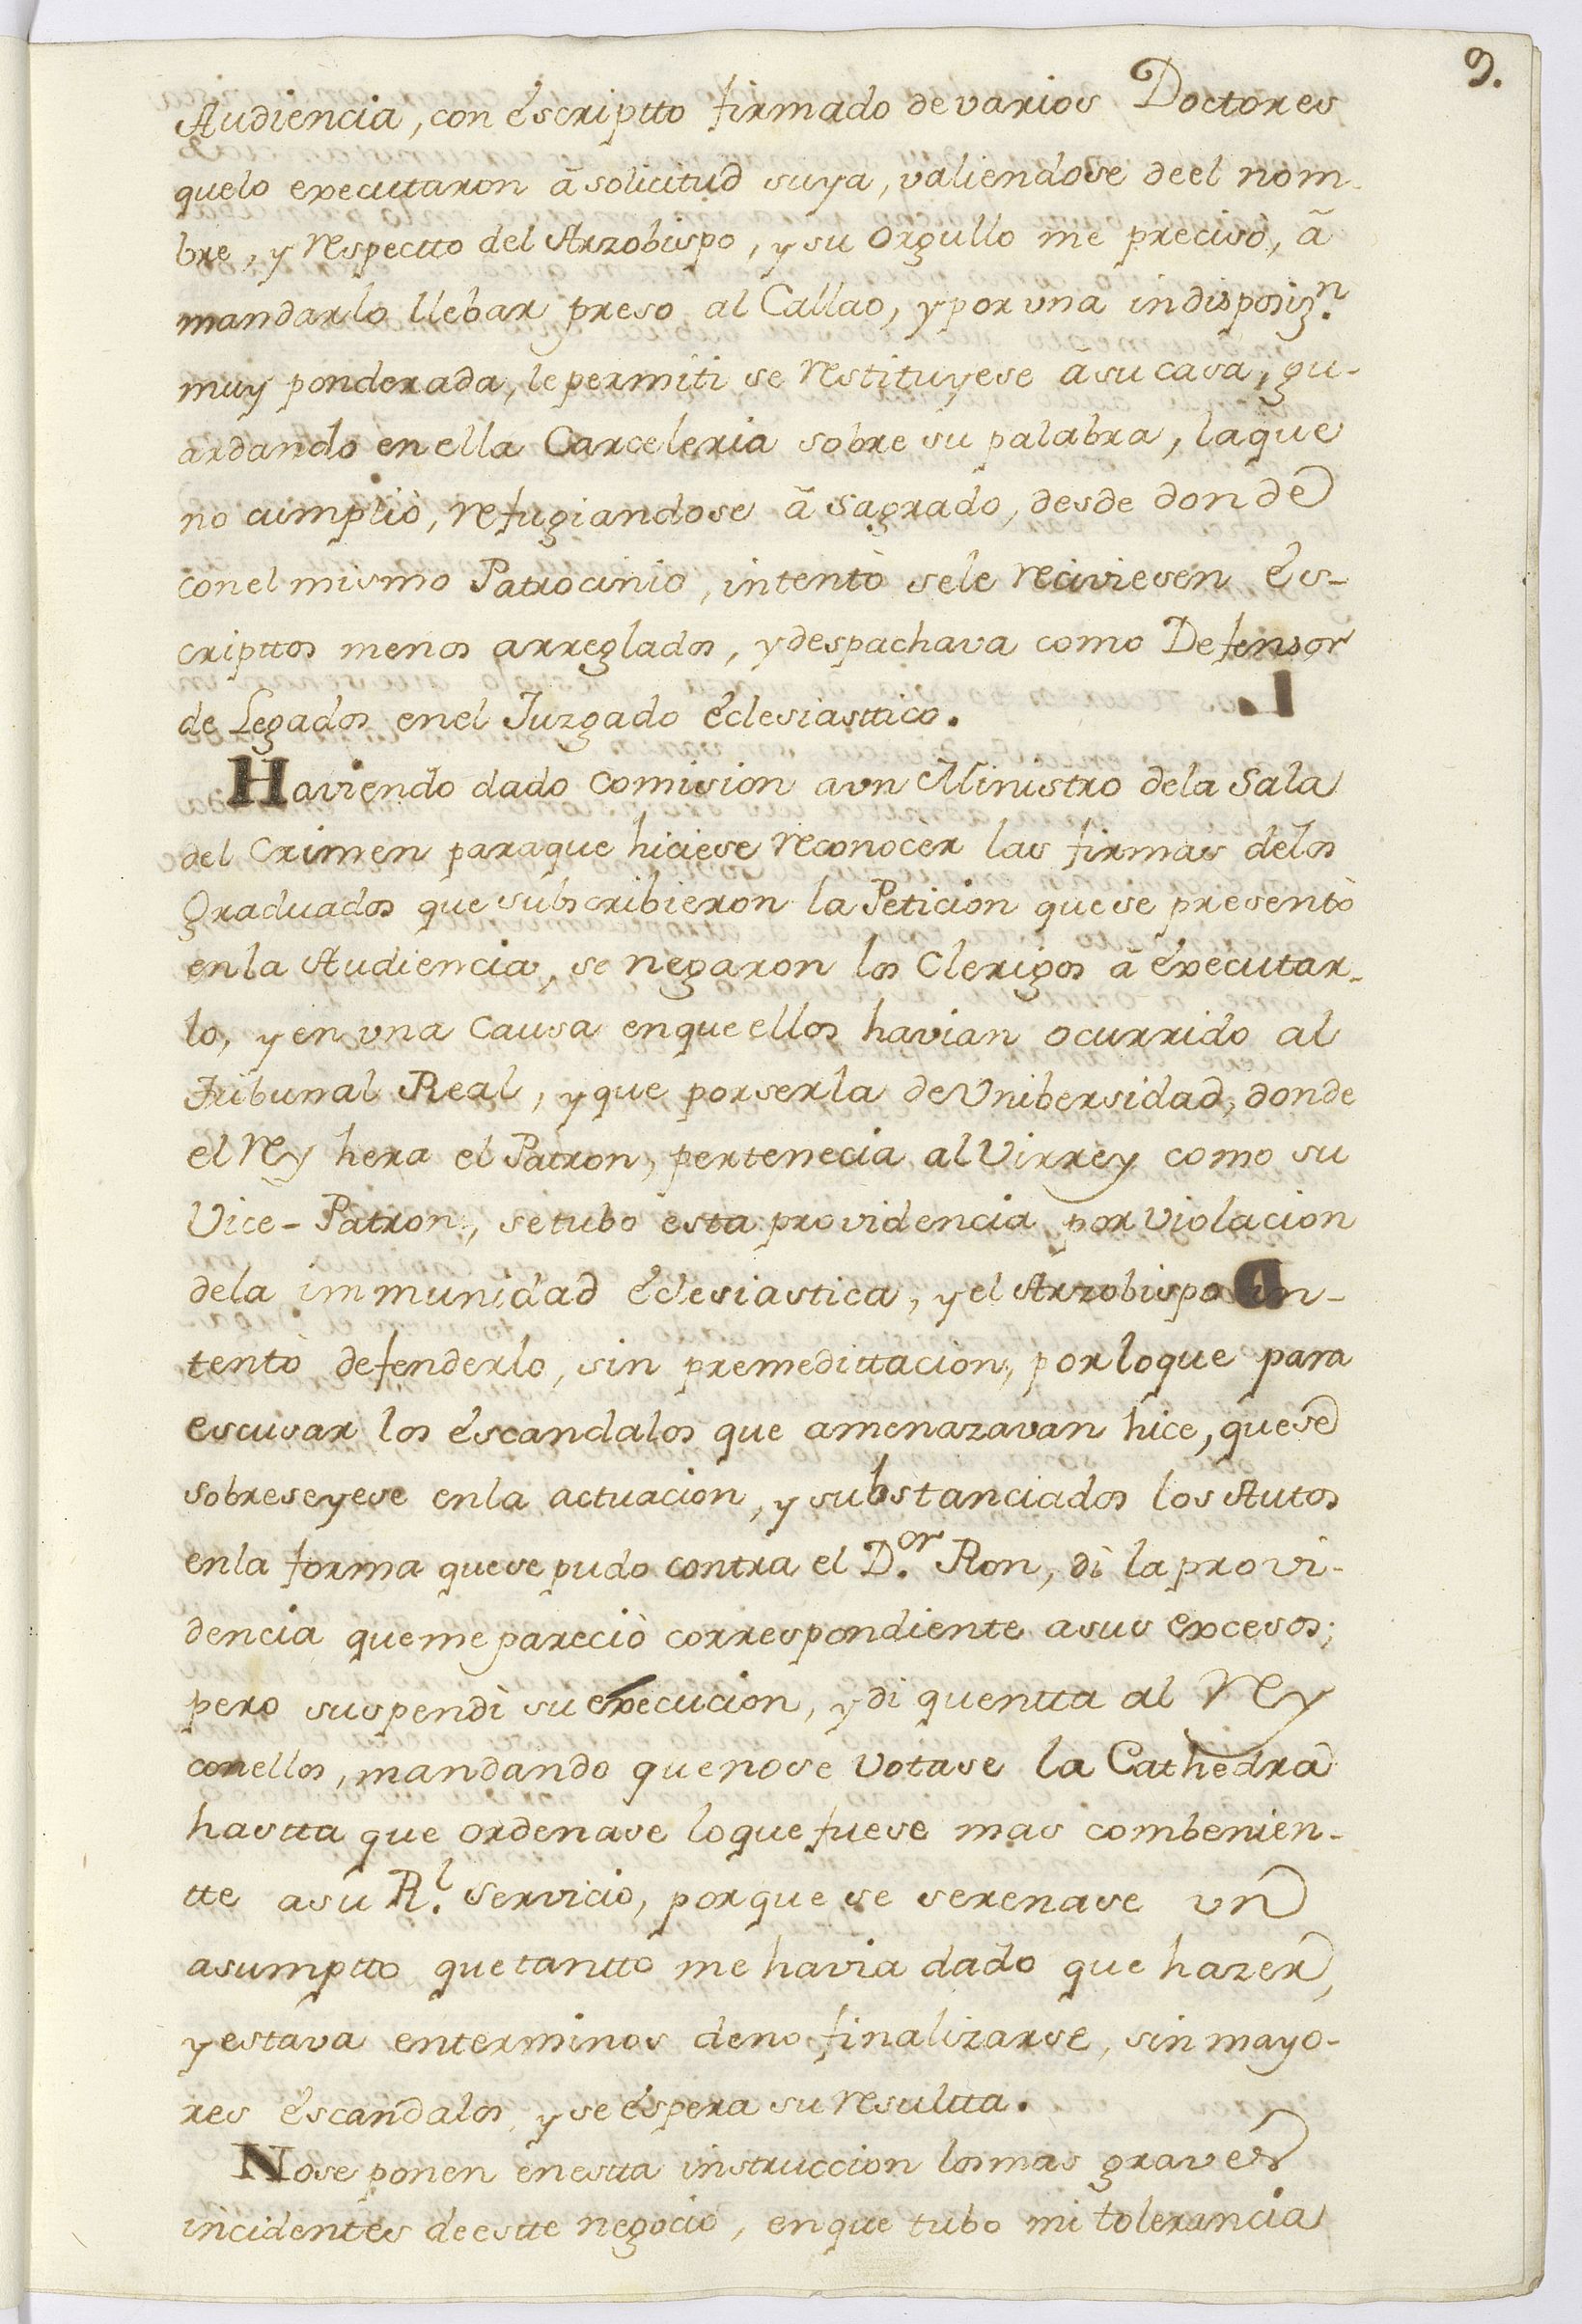 9.
Audiencia, con èscriptto firmado de varios Doctores
quelo executaron â solicitud suya, valiendose de el nom-
bre, y respectto del Arzobispo, y su orgullo me precisò, â
mandarlo llebar preso al Callao, y por una indisposiz.n
muy ponderada, le permiti se restituyese a su casa, gu-
ardando en ella Carceleria sobre su palabra, la que
no cumpliò, refugiandose â sagrado, desde donde
con el mismo Patrocinio, intentò sele reciviesen ès-
cripttos menos arreglados, y despachava como Defensor
de Legados en el Juzgado èclesiasttico.
Haviendo dado comision a vn Ministro de la Sala
del Crimen para que hiciese reconocer las firmas de los
Graduados que subscribieron la Peticion que se presentò
en la Audiencia, se negaron los Clerigos â èxecutar-
lo, y en vna Causa en que ellos havian ocurrido al
Tribunal Real, y que por serla de Vnibersidad, donde
el Rey hera el Patron, pertenecia al Virrey como su
Vice-Patron, se tubo esta providencia por violacion
de la immunidad èclesiastica, y el Arzobispo in-
tentò defenderlo, sin premedittacion, por lo que para
escusar los èscandalos que amenazavan hice, que se
sobreseyese en la actuacion, y substanciados los Autos
en la forma que se pudo contra el D.or Ron, dì la provi-
dencia que me pareciò correspondiente a sus excesos;
pero suspendì su execucion, y di quentta al Rey
con ellos, mandando que no se votase la Cathedra
hastta que ordenase lo que fuese mas combenien-
tte a su R.l servicio, porque se serenase vn
asumptto que tantto me havia dado que hazer,
y estava en terminos de no finalizarse, sin mayo-
res èscandalos, y se èspera su resultta.
No se ponen en estta instruccion los mas graves
incidentes de estte negocio, en que tubo mi tolerancia